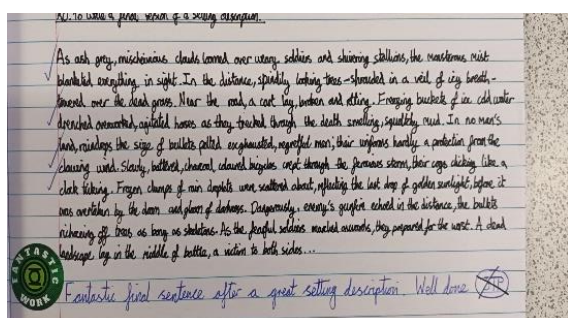 L.O. To write a final version of a setting description.
As ash grey, mischievous clouds loomed over weary soldiers and shivering stallions, the monstrous mist
blanketed everything in sight. In the distance, spindly looking trees - shrouded in a veil of icy breath -
towered over the dead grass. Near the road, a cart lay, broken and rotting. Freezing buckets of ice cold water
drenched overworked, agitated horses as they trecked through the death smelling, squelchy mud. In no man's
land, raindrops the size of bullets pelted exghausted, regretful men; their uniforms hardly a protection from the
clawing wind. Slowly, battered, charcoal coloured bicycles crept through the ferocious storm, their cogs clicking like a
clock ticking. Frozen clumps of rain droplets were scattered about, reflecting the last drop of golden sunlight, before it
was overtaken by the doom and gloom of darkness. Dangerously, enemy's gunfire echoed in the distance, the bullets
richening off trees as bony as skeletons. As the fearful soldiers marched onwards, they prepared for the worst. A dead
landscape lay in the middle of battle, a victim to both sides...
FANTASTIC WORK
Fantastic final sentence after a great setting description. Well done